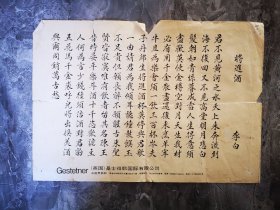 將進酒
李白
君不見黃河之水天上來奔流到
海不復回又不見高堂明鏡悲白
髮朝如青絲暮成雪人生得意須
盡歡莫使金樽空對月天生我材
必有用千金散盡還復來烹羊宰
牛且為樂會須一飲三百杯岑夫
子丹邱生將進酒杯莫停與君歌
一曲請君為我傾耳聽鐘鼓饌玉
不足貴但願長醉不願醒古來聖
賢皆寂寞惟有飲者留其名陳王
昔時宴平樂斗酒十千恣歡謔主
人何為言少錢徑須沽取對君酌
五花馬千金裘呼兒將出換美酒
與爾同銷萬古愁
Gestetner (英国)基士得耶国际有限公司